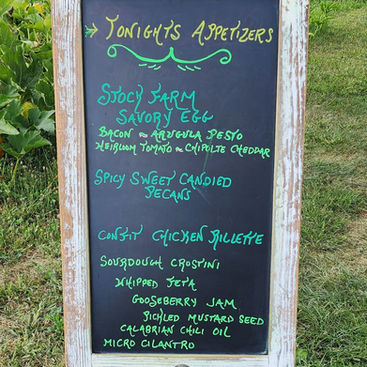 Tonight's Appetizers
Stocy Farm
Savory Egg
Bacon ~ Arugula Pesto
Heirloom Tomato ~ Chipolte Cheddar
Spicy Sweet Candied
Pecans
Confit Chicken Rillette
Sourdough Crostini
Whipped Feta
Gooseberry Jam
Pickled Mustard Seed
Calabrian Chili Oil
Micro Cilantro